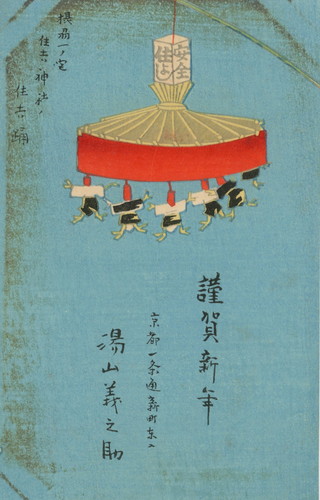 撰品一ノ宮
住吉神社ノ
住吉踊
安全
住よし
謹賀新年
京都一条通新町東入
湯山義之助